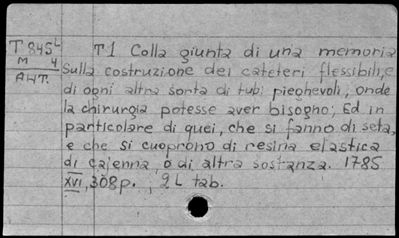 T 845L T1 Colla giunta di una memoria
M 4 Sulla costruzione dei cateteri flessibili, e
AHT. di ogni altra sorta di tubi pieghevoli, onde
la chirurgia potesse aver bisogno; Ed in
particolare di quei, che si fanno di seta,
e che si cuoprono di resina elastica
di cajenna, o di altra sostanza. 1785
XVI, 308p., 2L tab.